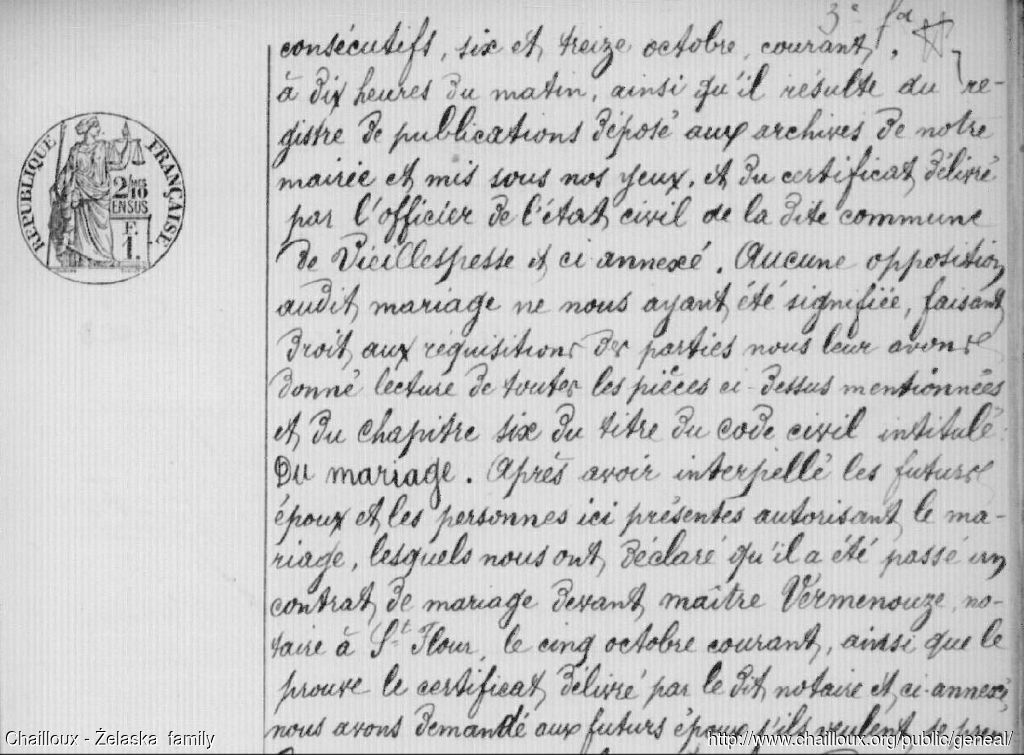 3e fd
consécutifs, six et treize octobre, courant,
à dix heures du matin, ainsi qu'il résulte du re-
gistre de publications déposé aux archives de notre
mairie et mis sous nos yeux, et du certificat délivré
par l'officier de l'état civil de la dite commune
de Vieillespesse et ci annexé. Aucune opposition
audit mariage ne nous ayant été signifiée, faisant
droit aux réquisitions des parties nous leur avons
donné lecture de toutes les pièces ci-dessus mentionnées
et du chapitre six du titre du code civil intitulé:
Du mariage. Après avoir interpellé les futurs
époux et les personnes ici présentes autorisant le ma-
riage, lesquels nous ont déclaré qu'il a été passé un
contrat de mariage devant maître Vermenouze, no-
taire à St Flour, le cinq octobre courant, ainsi que le
prouve le certificat délivré par le dit notaire et ci-annexé,
nous avons demandé aux futurs époux s'ils veulent se pren
RÉPUBLIQUE FRANÇAISE
2/10
EN SUS
F.
1.
Chailloux - Żelaska family
http://www.chailloux.org/public/geneal/